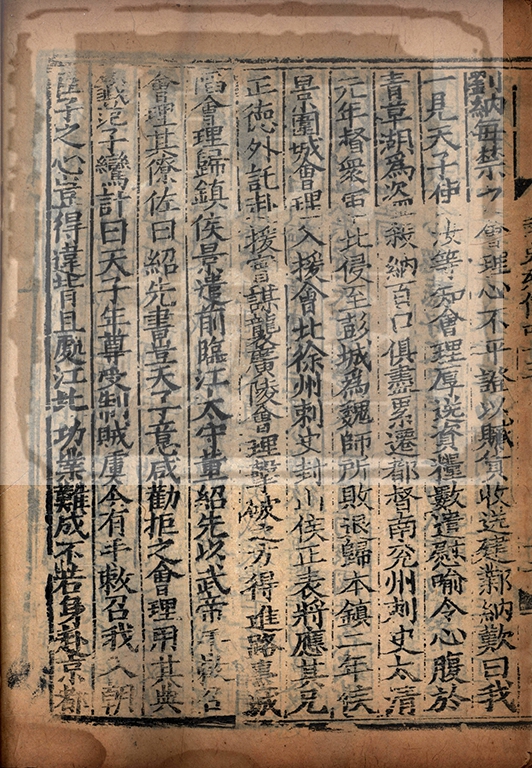 劉納每禁之會理心不平證以贓貨收送建鄴納歎曰我
一見天子使汝等知會理厚送資糧數遣慰喻令心腹於
青草湖為盜殺納百口俱盡累遷都督南兖州刺史太清
元年督衆軍北侵至彭城為魏師所敗退歸本鎮二年侯
景圍城會理入援會北徐州刺史封山侯正表將應其兄
正德外託赴援實謀襲廣陵會理擊破之方得進路臺城
會理歸鎮侯景遣前臨江太守董紹先以武帝手敕召
會理其僚佐曰紹先書豈天子意咸勸拒之會理用其典
籤范子鸞計曰天子年尊受制賊虜今有手敕召我入朝
臣子之心豈得違背且處江北功業難成不若身赴京都